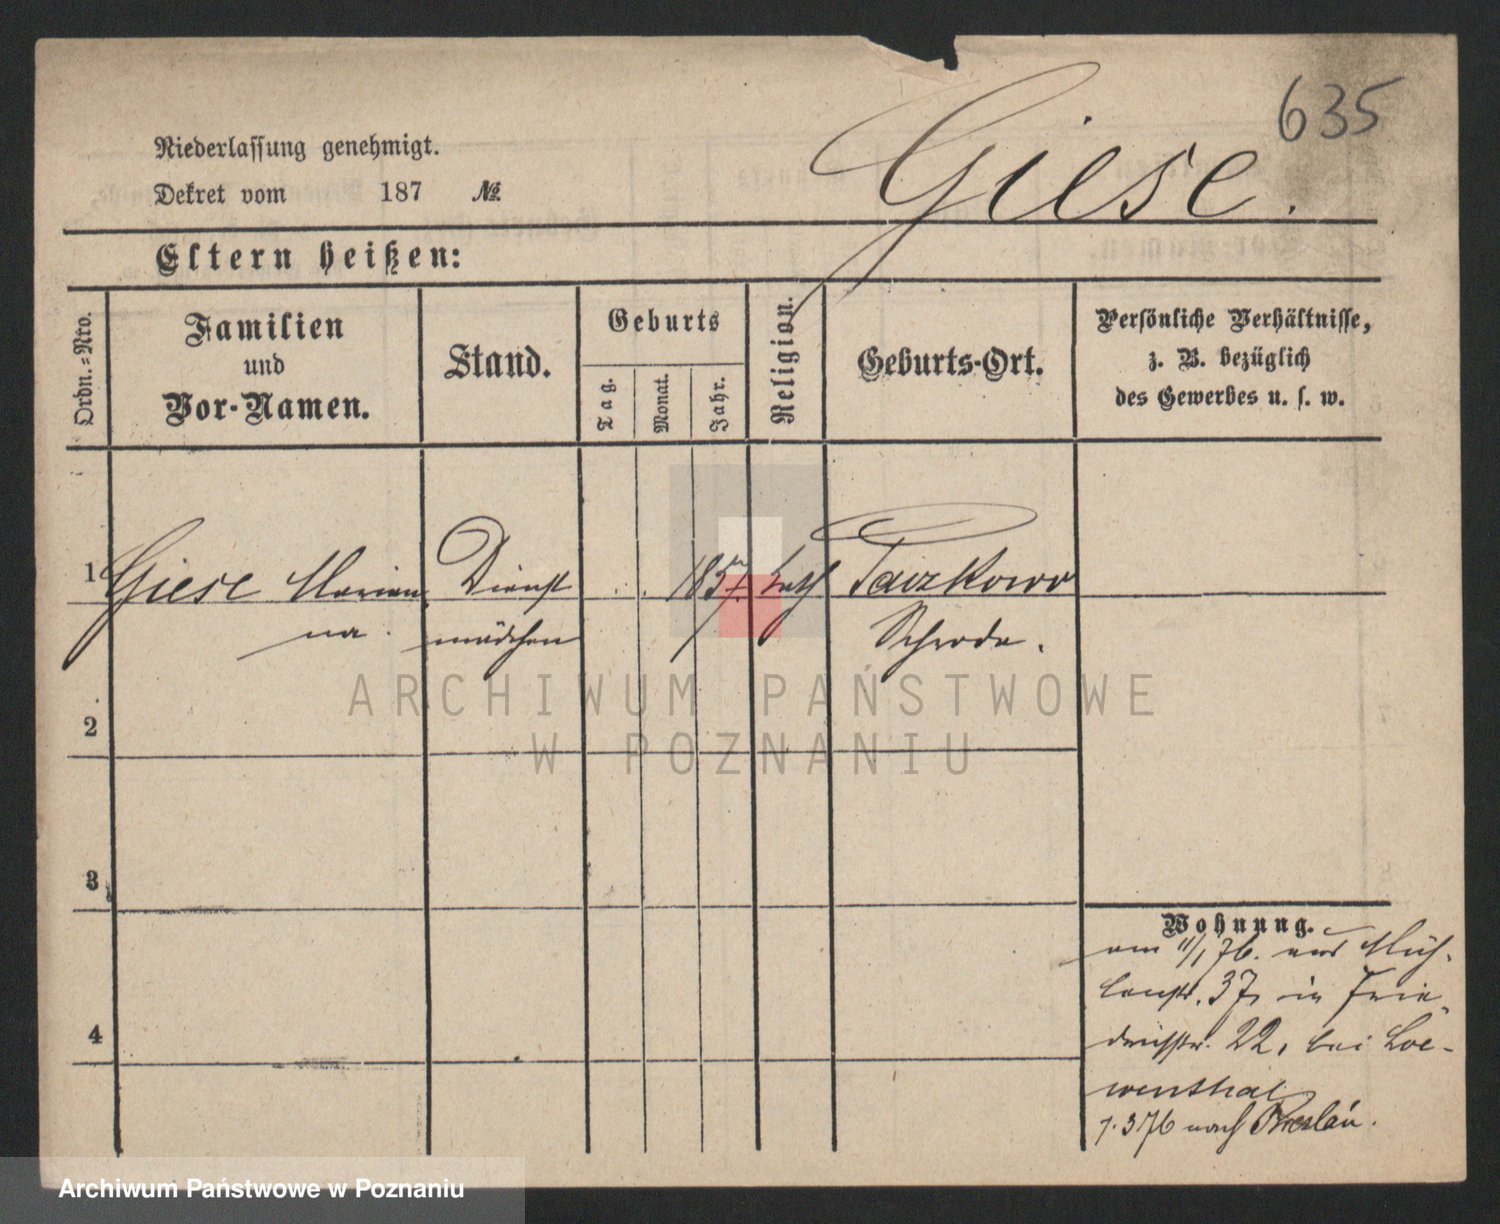 635
Giese.
Niederlassung genehmigt.
Dekret vom 187 №
Eltern heißen:
Ordn.-Nro.
Familien und Vor-Namen.
Stand.
Geburts
Tag.
Monat.
Jahr.
Religion.
Geburts-Ort.
Persönliche Verhältnisse,
z. B. bezüglich
des Gewerbes u. s. w.
1 Giese Marian Dienst 1857 kath Taczkowo
na. mädchen Schroda.
2
3
4
Wohnung.
am 11/1 76. aus Müh-
lenstr. 37, in Frie-
drichstr. 22, bei Loe-
wenthal
7.3 76 nach Breslau.
ARCHIWUM PAŃSTWOWE
W POZNANIU
Archiwum Państwowe w Poznaniu